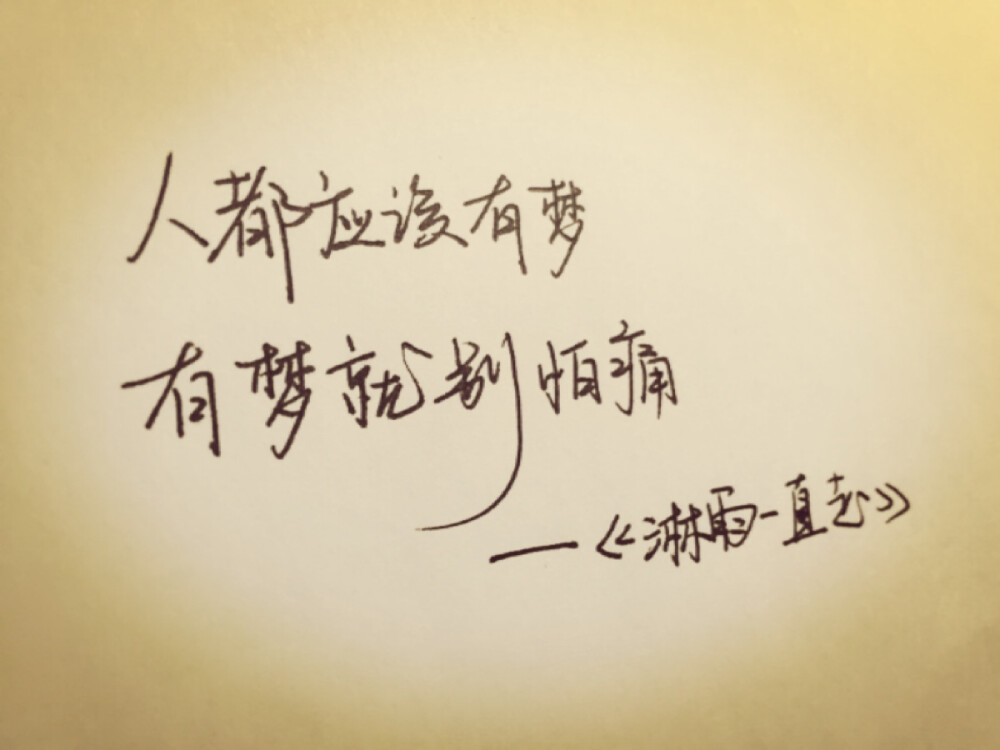 人都应该有梦
有梦就别怕痛
—《淋雨一直走》